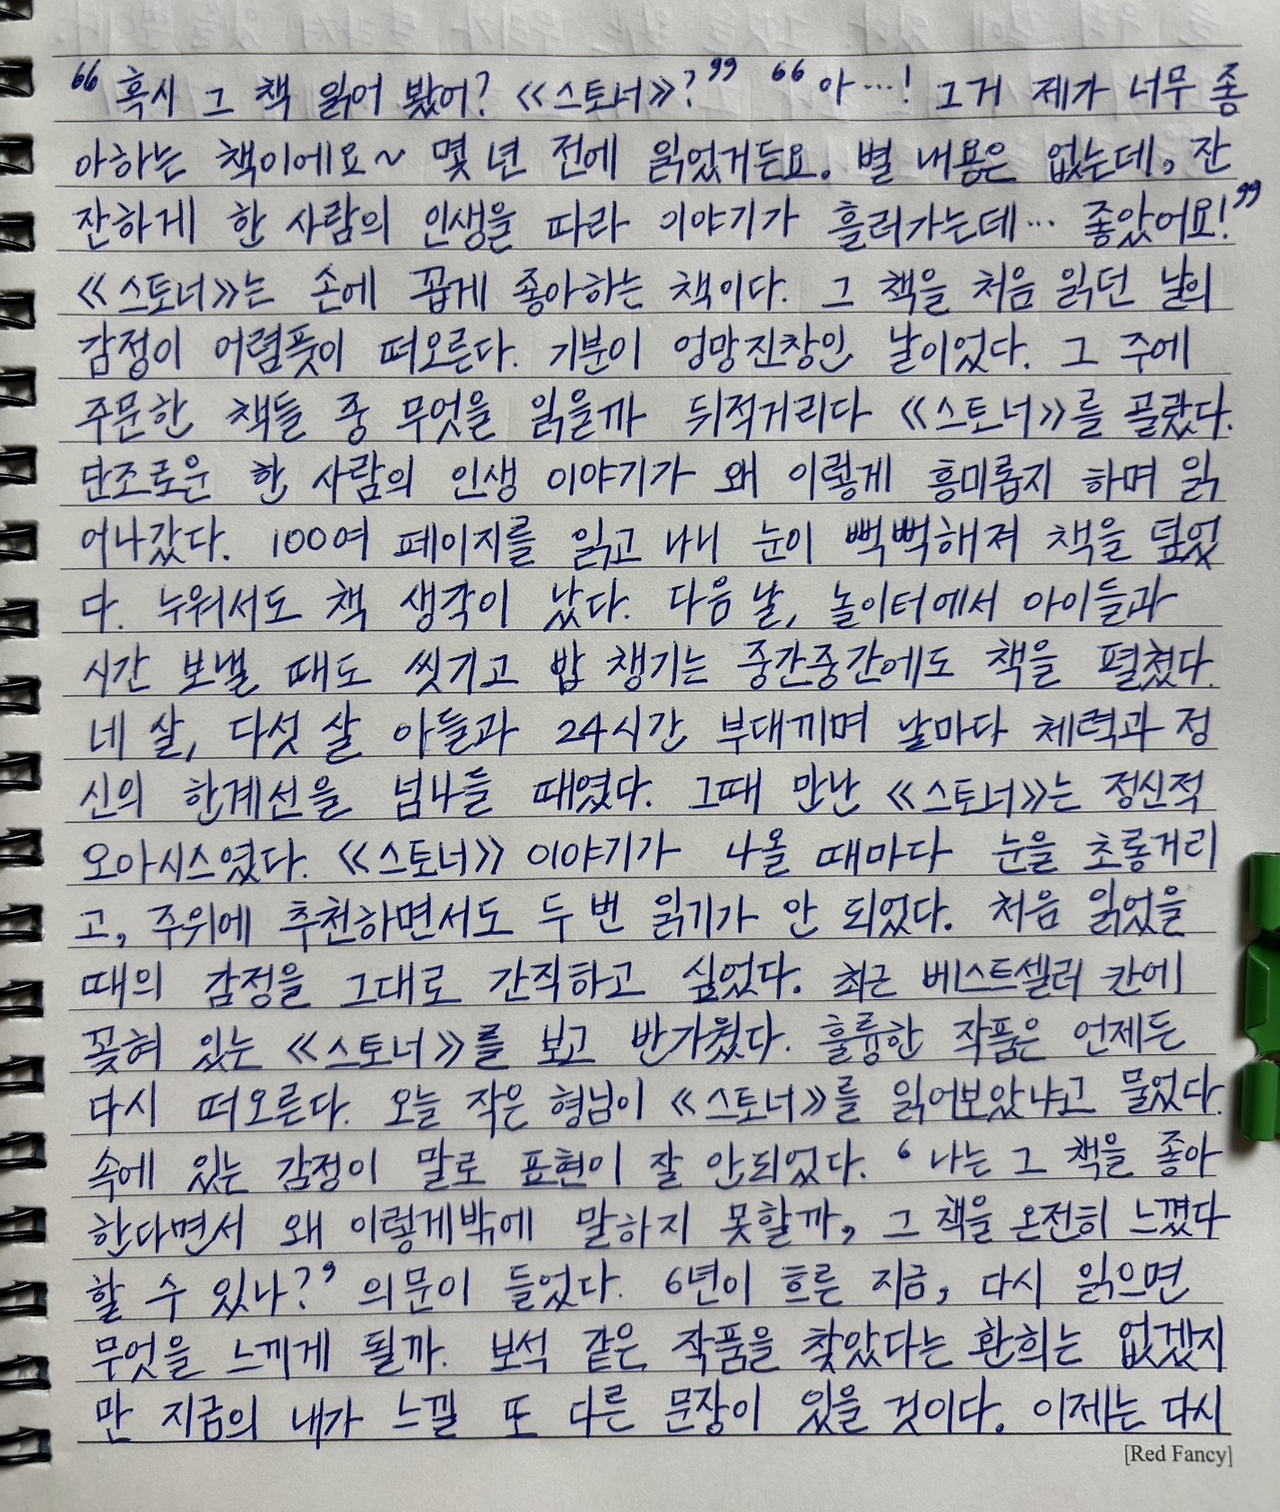 “혹시 그 책 읽어 봤어? 《스토너》?” “아…! 그거 제가 너무 좋
아하는 책이에요~ 몇 년 전에 읽었거든요. 별 내용은 없는데, 잔
잔하게 한 사람의 인생을 따라 이야기가 흘러가는데… 좋았어요!”
《스토너》는 손에 꼽게 좋아하는 책이다. 그 책을 처음 읽던 날의
감정이 어렴풋이 떠오른다. 기분이 엉망진창인 날이었다. 그 주에
주문한 책들 중 무엇을 읽을까 뒤적거리다 《스토너》를 골랐다.
단조로운 한 사람의 인생 이야기가 왜 이렇게 흥미롭지 하며 읽
어나갔다. 100여 페이지를 읽고 나니 눈이 뻑뻑해져 책을 덮었
다. 누워서도 책 생각이 났다. 다음 날, 놀이터에서 아이들과
시간 보낼 때도 씻기고 밥 챙기는 중간중간에도 책을 펼쳤다.
네 살, 다섯 살 아들과 24시간 부대끼며 날마다 체력과 정
신의 한계선을 넘나들 때였다. 그때 만난 《스토너》는 정신적
오아시스였다. 《스토너》 이야기가 나올 때마다 눈을 초롱거리
고, 주위에 추천하면서도 두 번 읽기가 안 되었다. 처음 읽었을
때의 감정을 그대로 간직하고 싶었다. 최근 베스트셀러 칸에
꽂혀 있는 《스토너》를 보고 반가웠다. 훌륭한 작품은 언제든
다시 떠오른다. 오늘 작은 형님이 《스토너》를 읽어보았냐고 물었다.
속에 있는 감정이 말로 표현이 잘 안되었다. ‘나는 그 책을 좋아
한다면서 왜 이렇게밖에 말하지 못할까, 그 책을 온전히 느꼈다
할 수 있나?’ 의문이 들었다. 6년이 흐른 지금, 다시 읽으면
무엇을 느끼게 될까. 보석 같은 작품을 찾았다는 환희는 없겠지
만 지금의 내가 느낄 또 다른 문장이 있을 것이다. 이제는 다시
[Red Fancy]